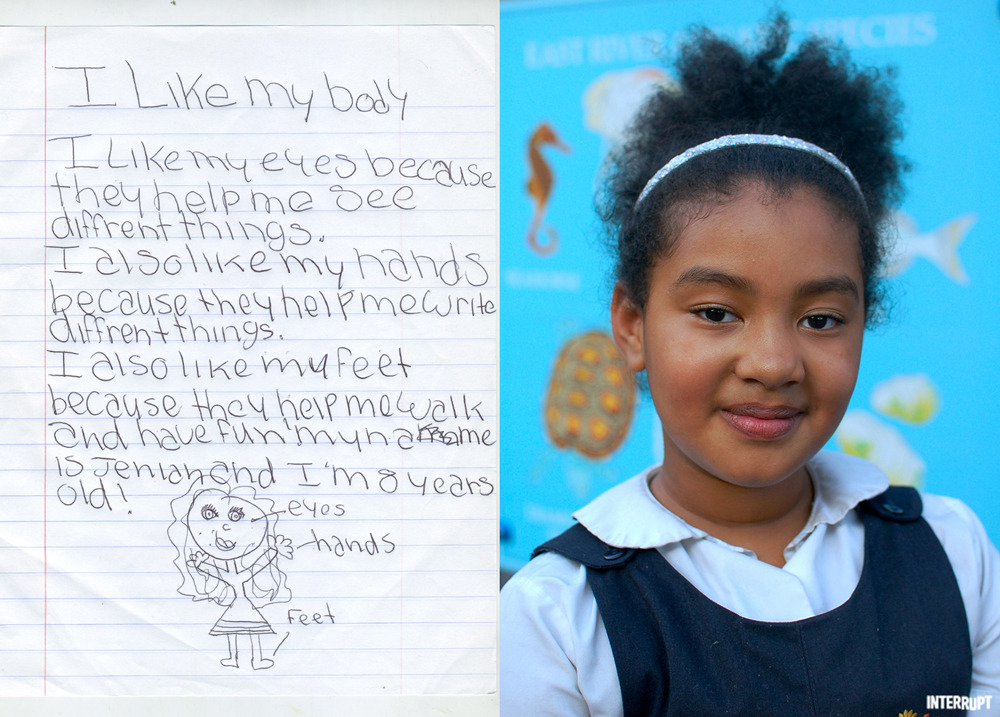 I Like my body
I Like my eyes because
they help me see
diffrent things.
I also like my hands
because they help me write
diffrent things.
I also like my feet
because they help me walk
and have fun! my name
is Jenian and I'm 8 years
old!
eyes
hands
Feet
EAST RIVER SPECIES
INTERRUPT